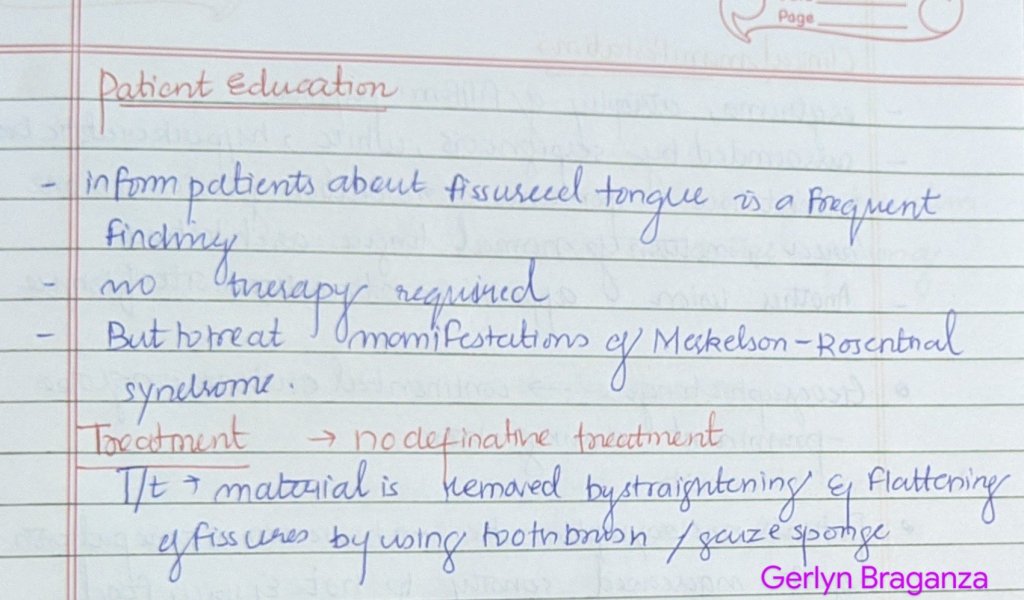 Page
Patient Education
- inform patients about fissured tongue is a frequent
finding
- no therapy required
- But to treat manifestations of Meskelson-Rosenthal
syndrome.
Treatment → no definative treatment
T/t → material is removed by straightening & flattening
of fissures by using toothbrush / gauze sponge
Gerlyn Braganza